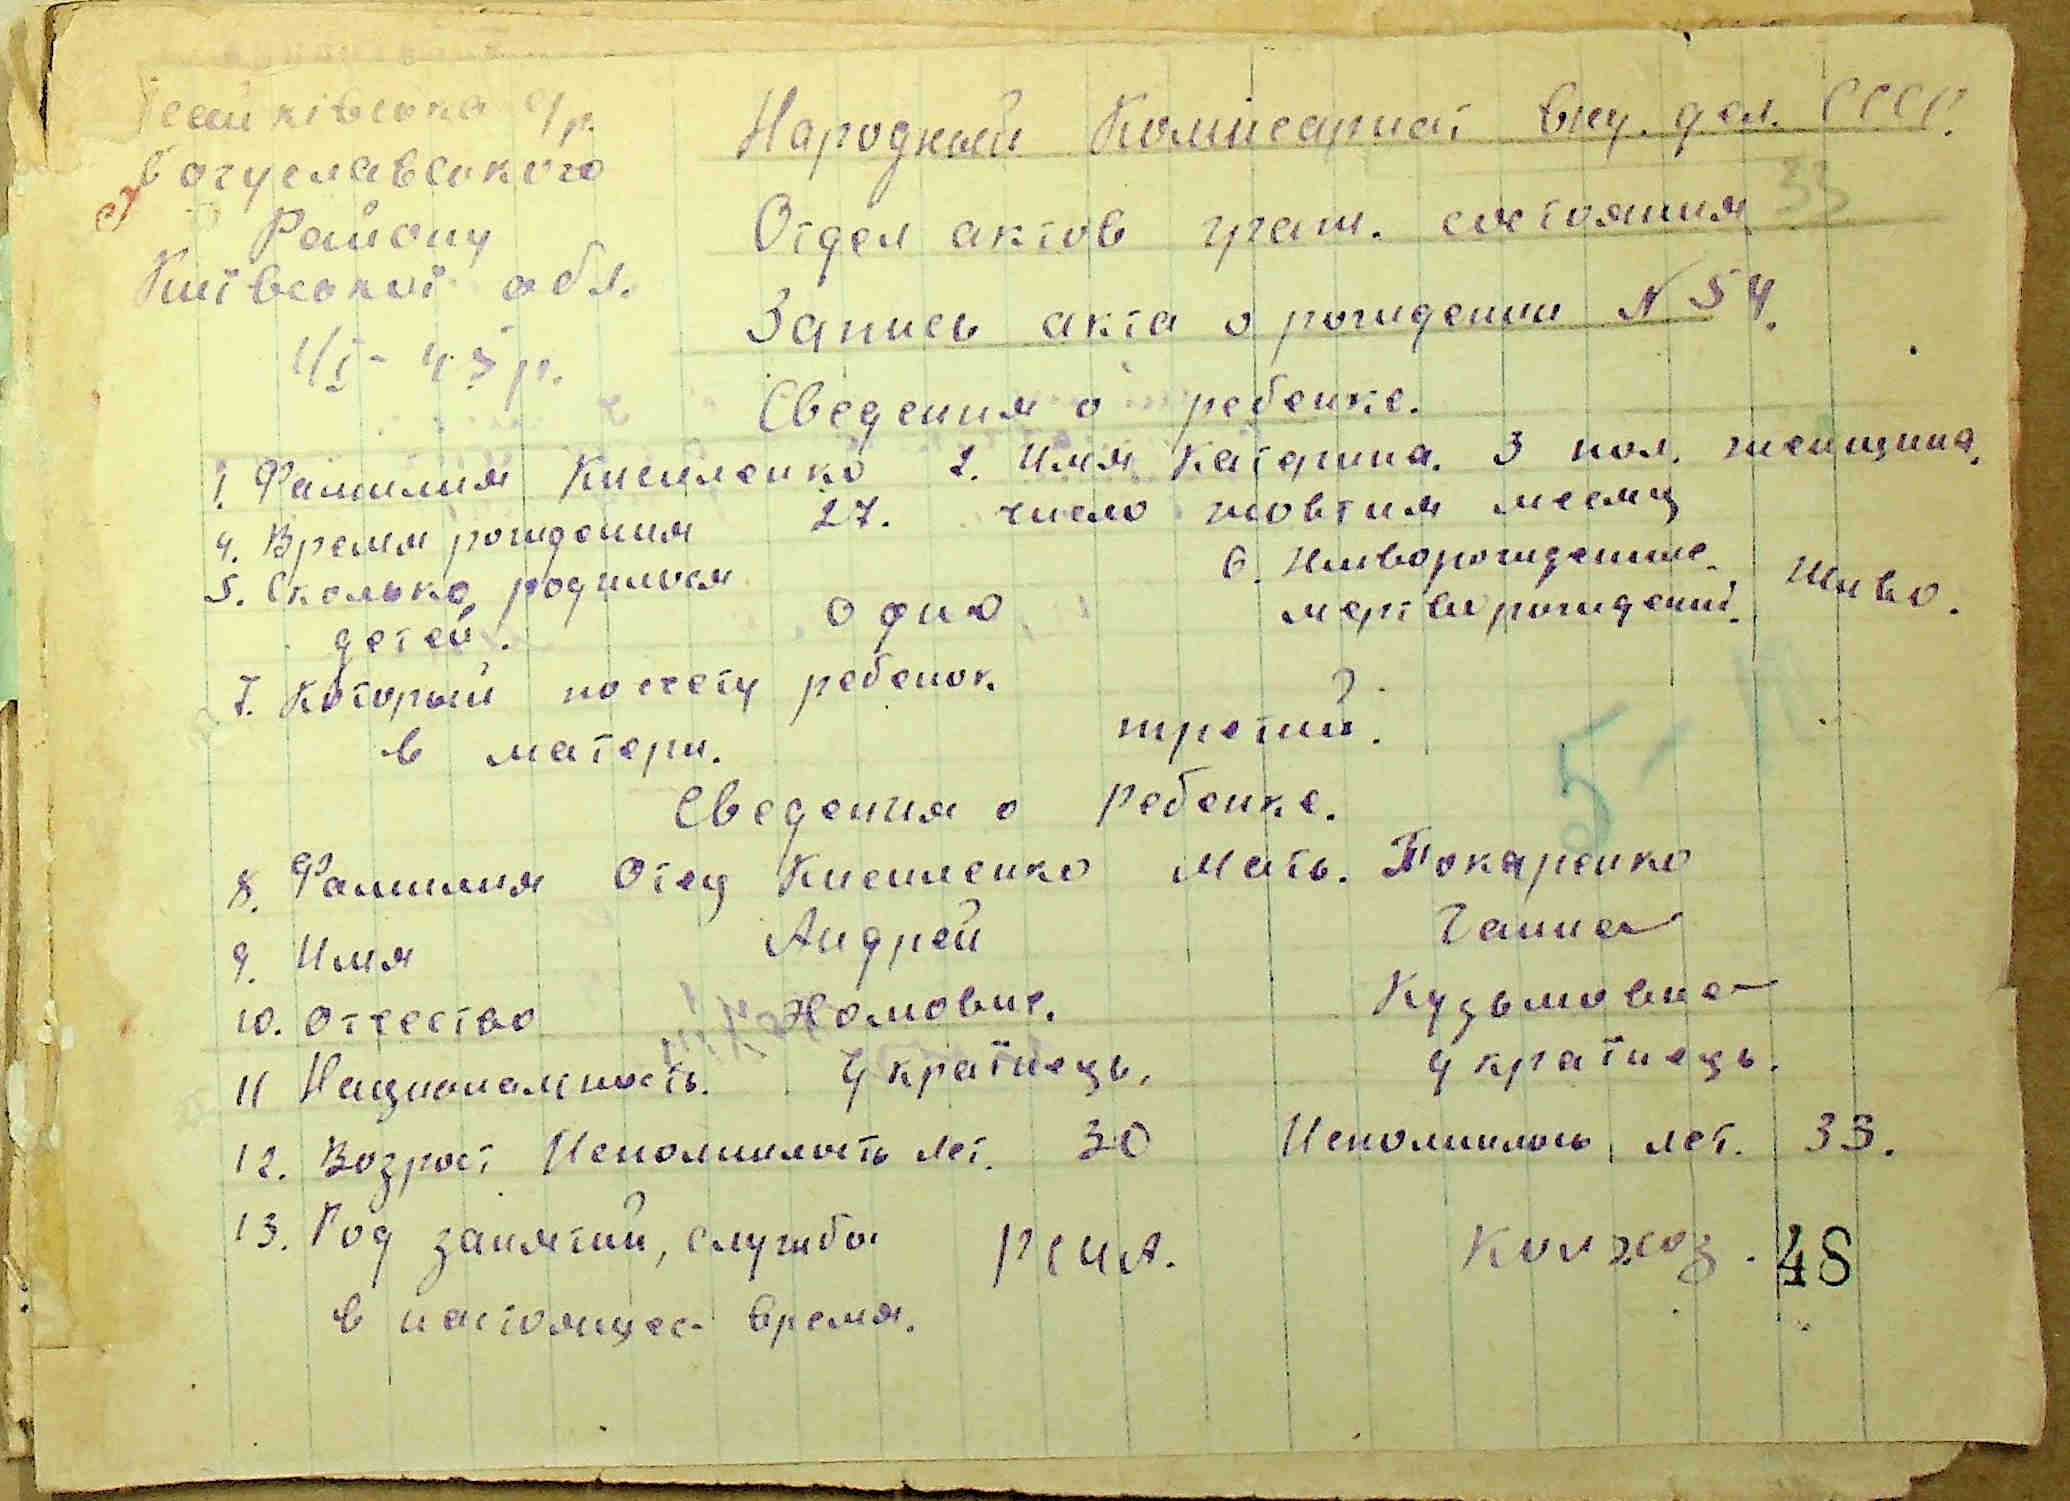 Богуславського
Району
Київської обл.
1/I - 45 р.
Народный Комисариат вну. дел. СССР.
Отдел актов граж. состояния
33
Запись акта о рождении N 54.
Сведения о ребенке.
1. Фамилия Кисиленко 2. Имя Катерина. 3 пол. женщина.
4. Время рождения 27. число жовтня месяц
5. Сколько родилося детей. одно 6. Живорожденные мертворожден. Живо.
7. Который по счету ребенок
в матери. третий.
5
Сведения о ребенке.
8. Фамилия Отец Кисиленко Мать. Токаренко
9. Имя Андрей Ганна
10. Отчество Хомович. Кузьмовна
11 Национальность. Українець, українець.
12. Возраст Исполнилость лет. 30 Исполнилось лет. 33.
13. Год занятий, служба РККА. Колхоз. 48
в настоящее время.